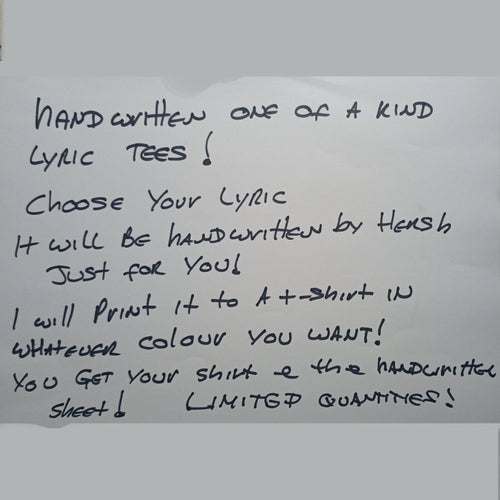 HANDWRITTEN ONE OF A KIND
LYRIC TEES!
CHOOSE YOUR LYRIC
It will BE HANDWRITTEN by HERSH
JUST FOR YOU!
I will PRINT it to A t-shirt IN
WHATEVER colour YOU WANT!
YOU GET YOUR shirt e the HANDWRITTEN
sheet! LIMITED QUANTITIES!